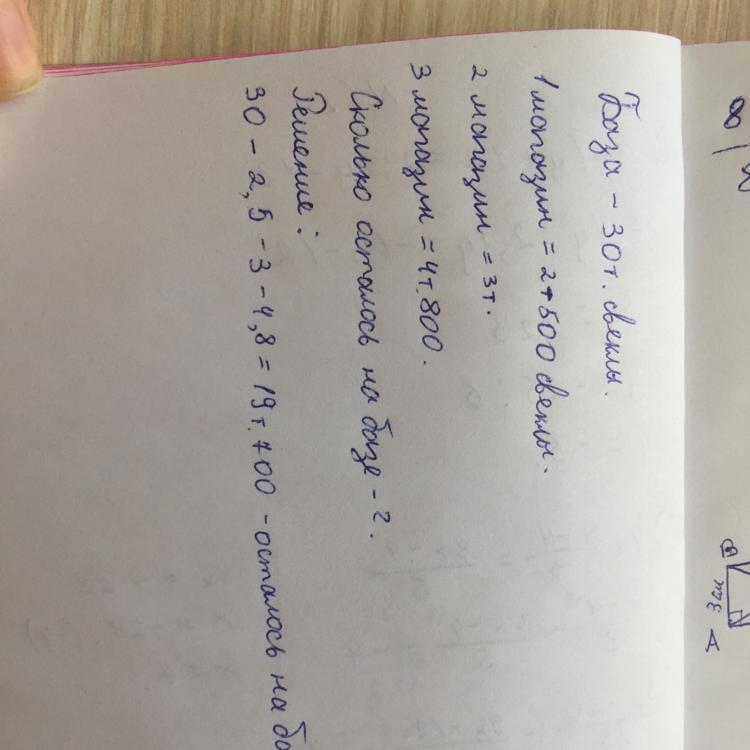 База - 30т. свеклы.
1 магазин = 2т500 свеклы.
2 магазин = 3т.
3 магазин = 4т.800.
Сколько осталось на базе - ?.
Решение:
30 - 2,5 - 3 - 4,8 = 19т.700 - осталось на ба
8
B
A